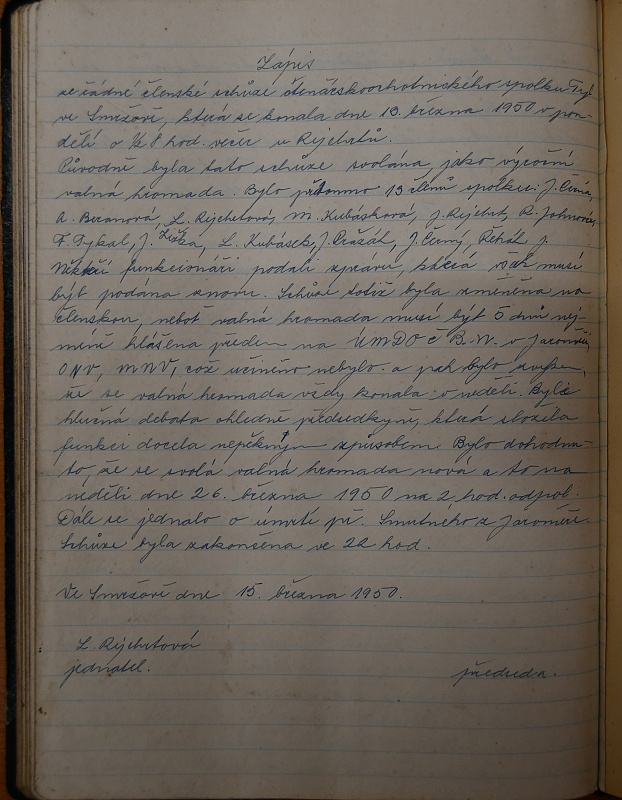 Zápis
se řádné členské schůze čtenářskoochotnického spolku Tyl
ve Smržově, která se konala dne 13. března 1950 v pon-
dělí o ½ 8 hod. večer u Rejchrtů.
Původně byla tato schůze svolána, jako výroční
valná hromada. Bylo přítomno 13 členů spolku: J. Černá,
A. Beranová, L. Rejchrtová, M. Kubásková, J. Rejchrt, R.
F. Tykal, J. Žižka, L. Kubásek, J. Pražák, J. Černý, Řehák J.
Někteří funkcionáři podali zprávu, která však musí
býti podána znovu. Schůze totiž byla změněna na
členskou, neboť valná hromada musí být 5 dnů nej-
méně hlášena předem na ÚMDOČ B.-N. v Jaroměři,
ONV, MNV, což učiněno nebylo. a pak bylo zvykem,
že se valná hromada vždy konala v neděli. Byla
hlučná debata ohledně předsedkyně, která složila
funkci docela nepěkným způsobem. Bylo dohodnu-
to, že se svolá valná hromada nová a to na
neděli dne 26. března 1950 na 2 hod. odpol.
Dále se jednalo o úmrtí př. Smutného z Jaroměře.
Schůze byla zakončena ve 22 hod.
Ve Smržově dne 15. března 1950.
L. Rejchrtová
jednatel.
předseda.